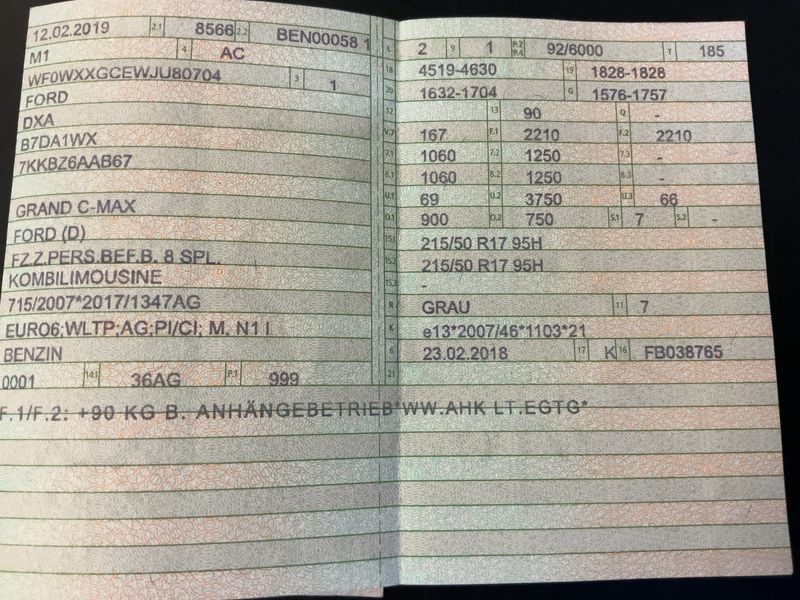 12.02.2019 2.1 8566 2.2 BEN00058 1
M1 4 AC
WF0WXXGCEWJU80704 3 1
FORD
DXA
B7DA1WX
7KKBZ6AAB67
GRAND C-MAX
FORD (D)
FZ.Z.PERS.BEF.B. 8 SPL.
KOMBILIMOUSINE
715/2007*2017/1347AG
EURO6;WLTP;AG;PI/CI; M, N1 I
BENZIN
0001 14.1 36AG P.1 999
L 2 9 1 P.2 P.4 92/6000 T 185
18 4519-4630 19 1828-1828
20 1632-1704 G 1576-1757
12 13 90 Q -
V.7 167 F.1 2210 F.2 2210
7.1 1060 7.2 1250 7.3 -
8.1 1060 8.2 1250 8.3 -
U.1 69 U.2 3750 U.3 66
O.1 900 O.2 750 S.1 7 S.2 -
15.1 215/50 R17 95H
15.2 215/50 R17 95H
15.3 -
R GRAU 11 7
K e13*2007/46*1103*21
6 23.02.2018 17 K 16 FB038765
21
F.1/F.2: +90 KG B. ANHÄNGEBETRIEB*WW.AHK LT.EGTG*